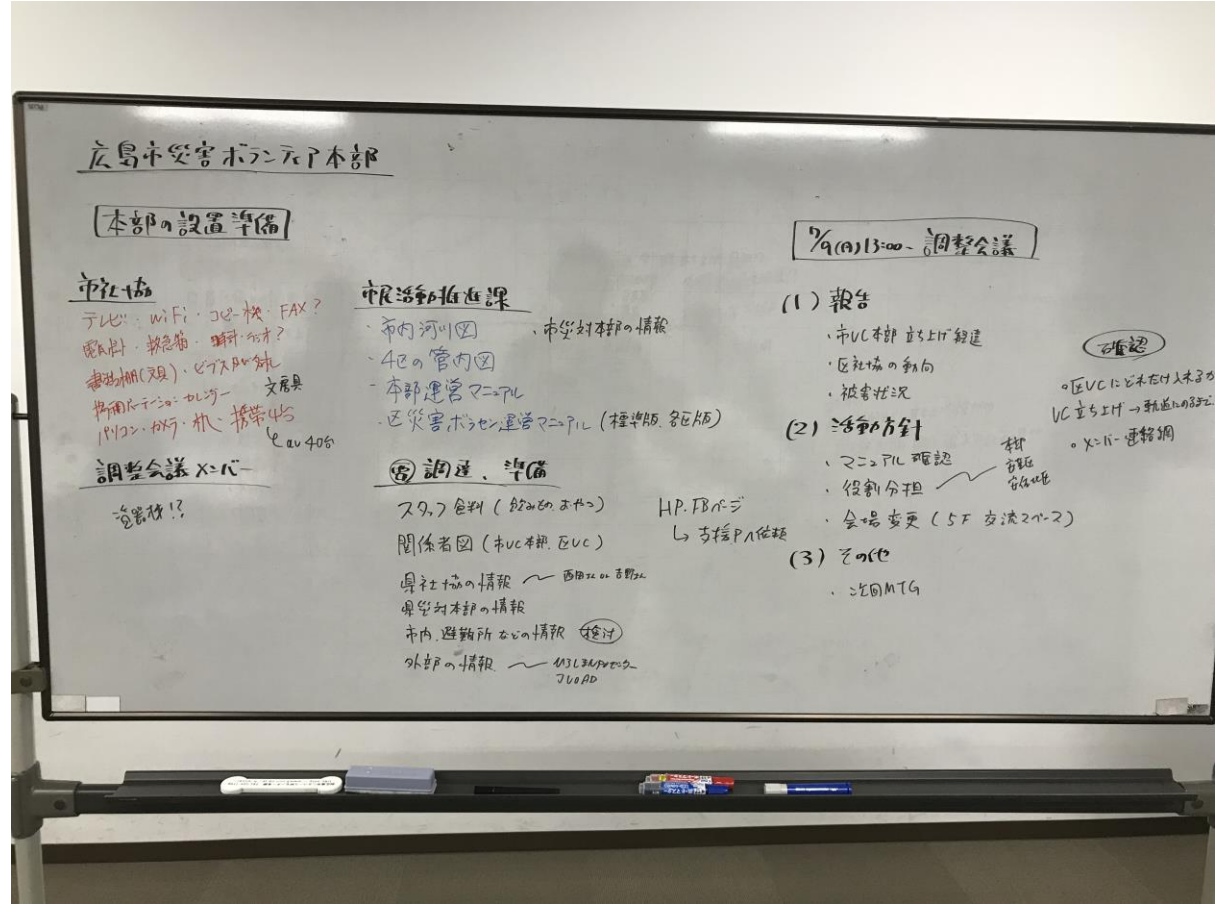 広島市災害ボランティア本部
本部の設置準備
市社協
テレビ・WiFi・コピー機・FAX?
電気ポット・救急箱・時計・ラジオ?
書類棚(文具)・ビブス
パーテーション カレンダー 文房具
パソコン・カメラ・机・携帯4台
au 40台
調整会議メンバー
市民活動推進課
・市内河川図 ・市災対本部の情報
・4区の管内図
・本部運営マニュアル
・区災害ボラセン運営マニュアル(標準版、各区版)
調達、準備
スタッフ食料(飲みもの、おやつ)
関係者図(市VC本部、区VC)
県社協の情報 西田さん or 吉野さん
県災対本部の情報
市内、避難所などの情報 検討
外部の情報
JVOAD
HP、FBページ
↳ 支援Pへ依頼
7/9(月)13:00~調整会議
(1) 報告
・市VC本部 立ち上げ経過
・区社協の動向
・被害状況
(2) 活動方針
・マニュアル確認
・役割分担
・会場変更(5F 交流スペース)
(3) その他
・次回MTG
確認
○区VCにどれだけ入れるか
VC立ち上げ→軌道にのるまで
○メンバー連絡網